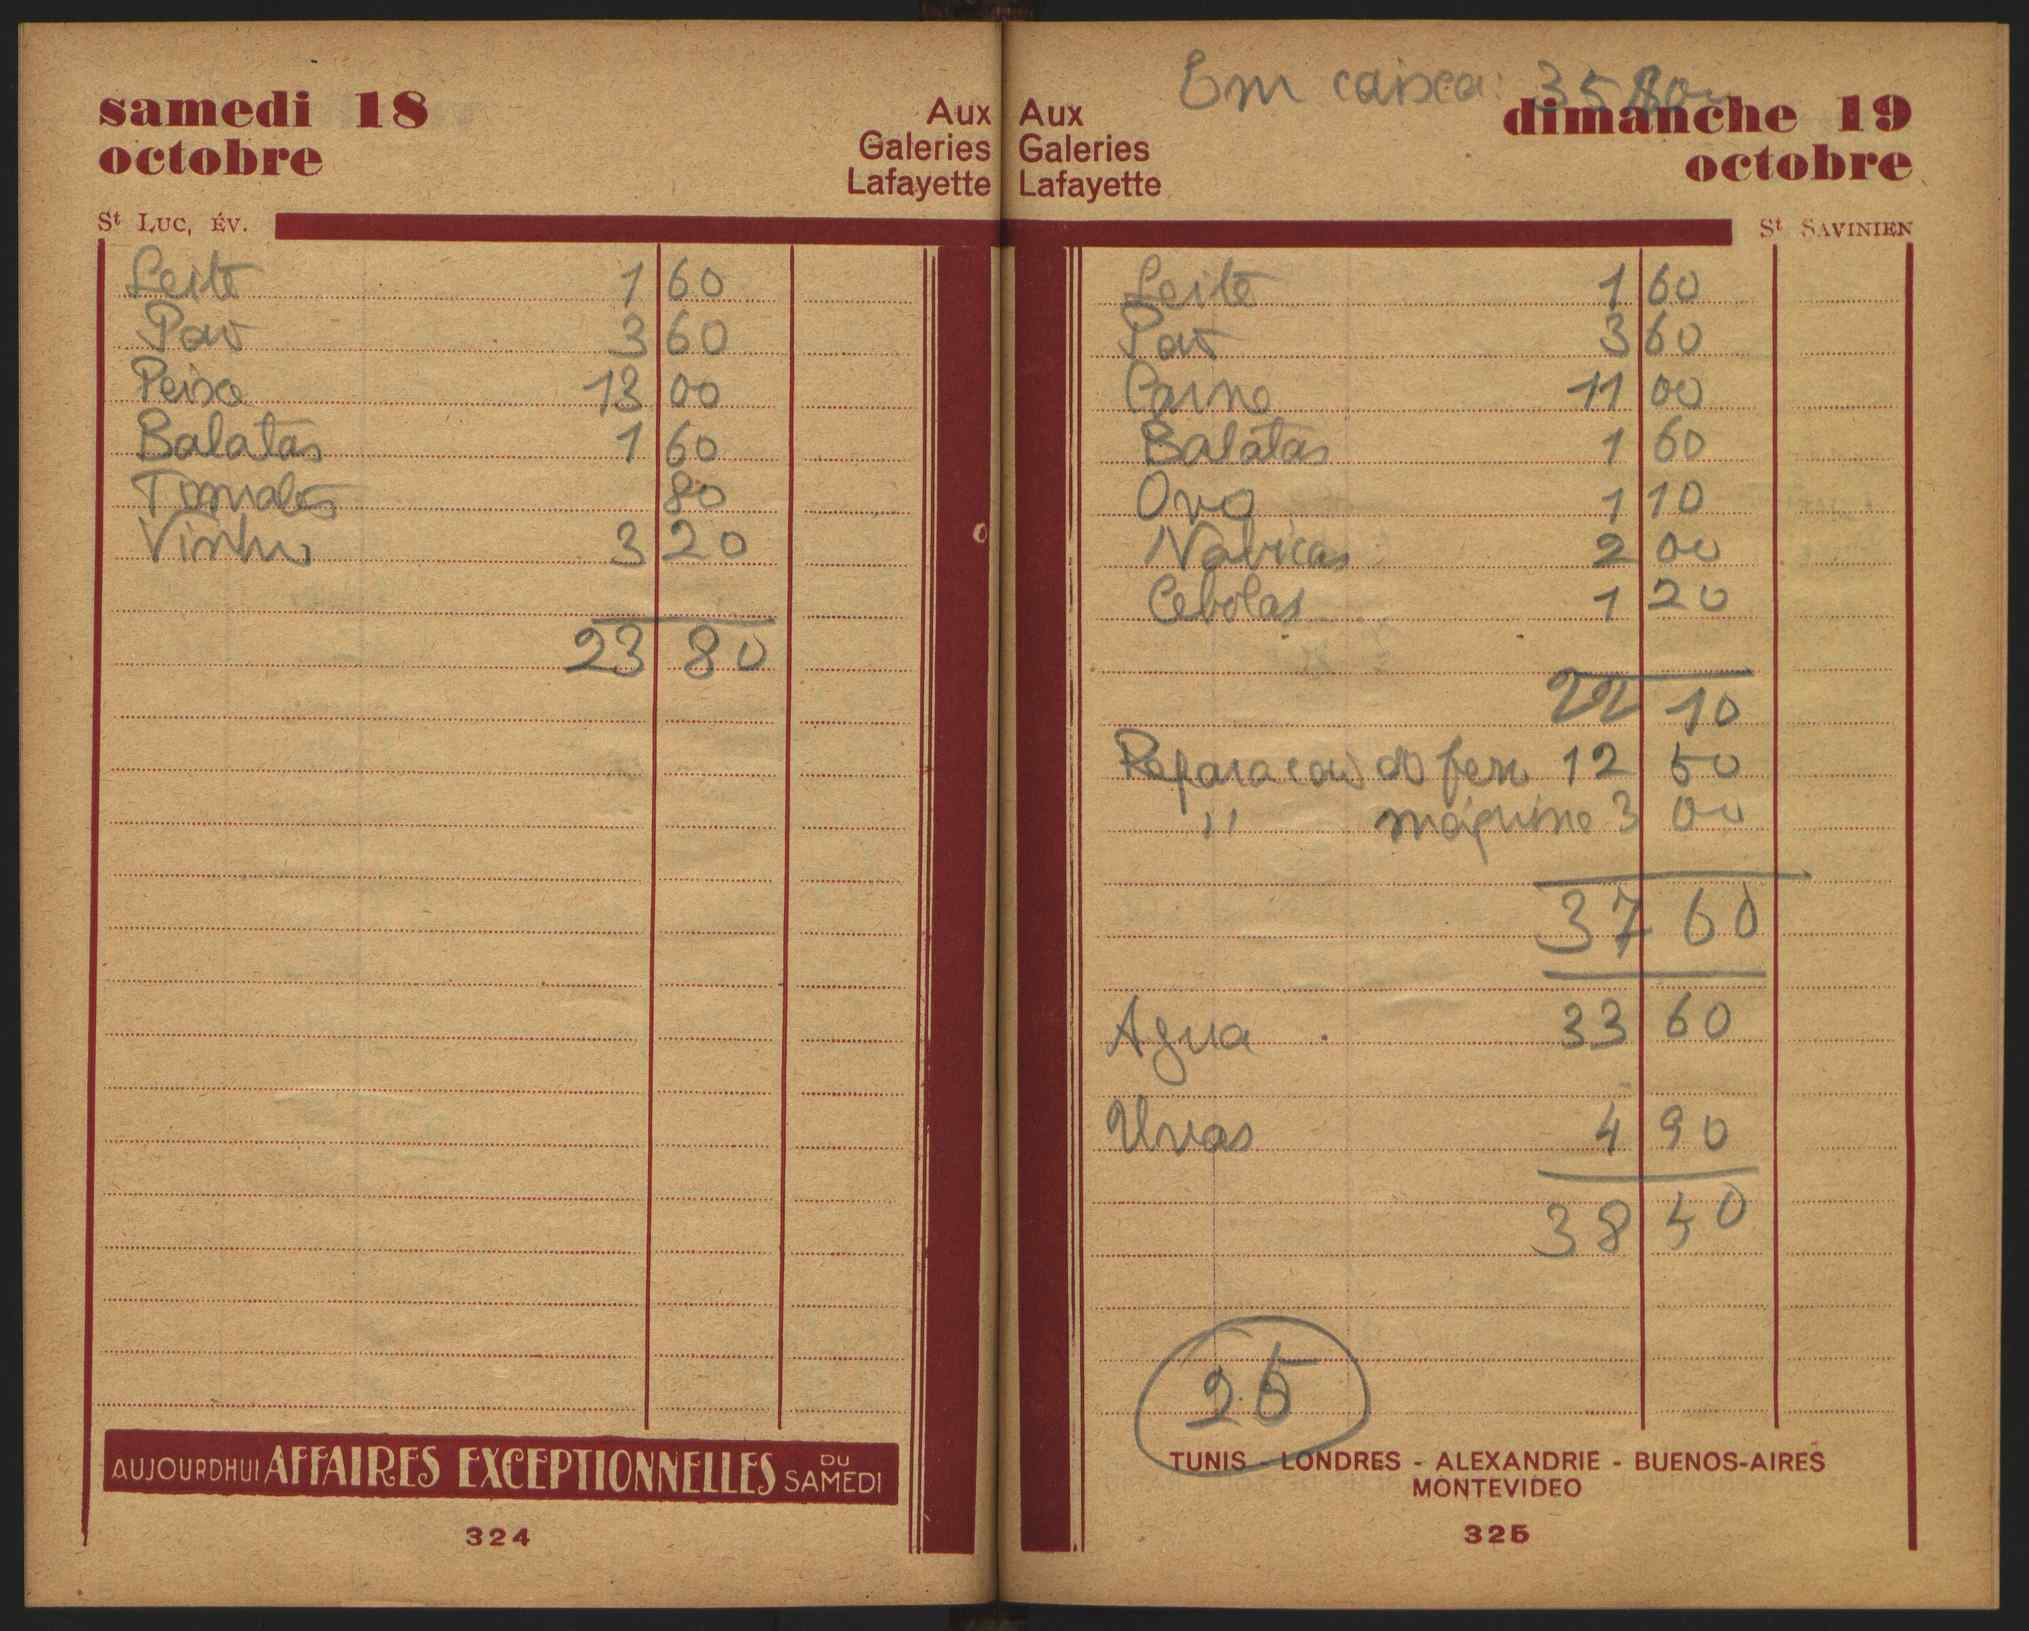 samedi 18
octobre
Aux
Galeries
Lafayette
St Luc, ÉV.
Leite 1 60
Pão 3 60
Peixe 13 00
Batatas 1 60
Tomates 80
Vinho 3 20
23 80
AUJOURDHUI AFFAIRES EXCEPTIONNELLES DU SAMEDI
324
Em caixa:
Aux
Galeries
Lafayette
dimanche 19
octobre
St SAVINIEN
Leite 1 60
Pão 3 60
Carne 11 00
Batatas 1 60
Ovo 1 10
Nabiças 2 00
Cebolas 1 20
22 10
Reparacão do ferro 12 50
" máquina 3 00
37 60
Agua 33 60
Uvas 4 90
38 50
25
TUNIS - LONDRES - ALEXANDRIE - BUENOS-AIRES
MONTEVIDEO
325